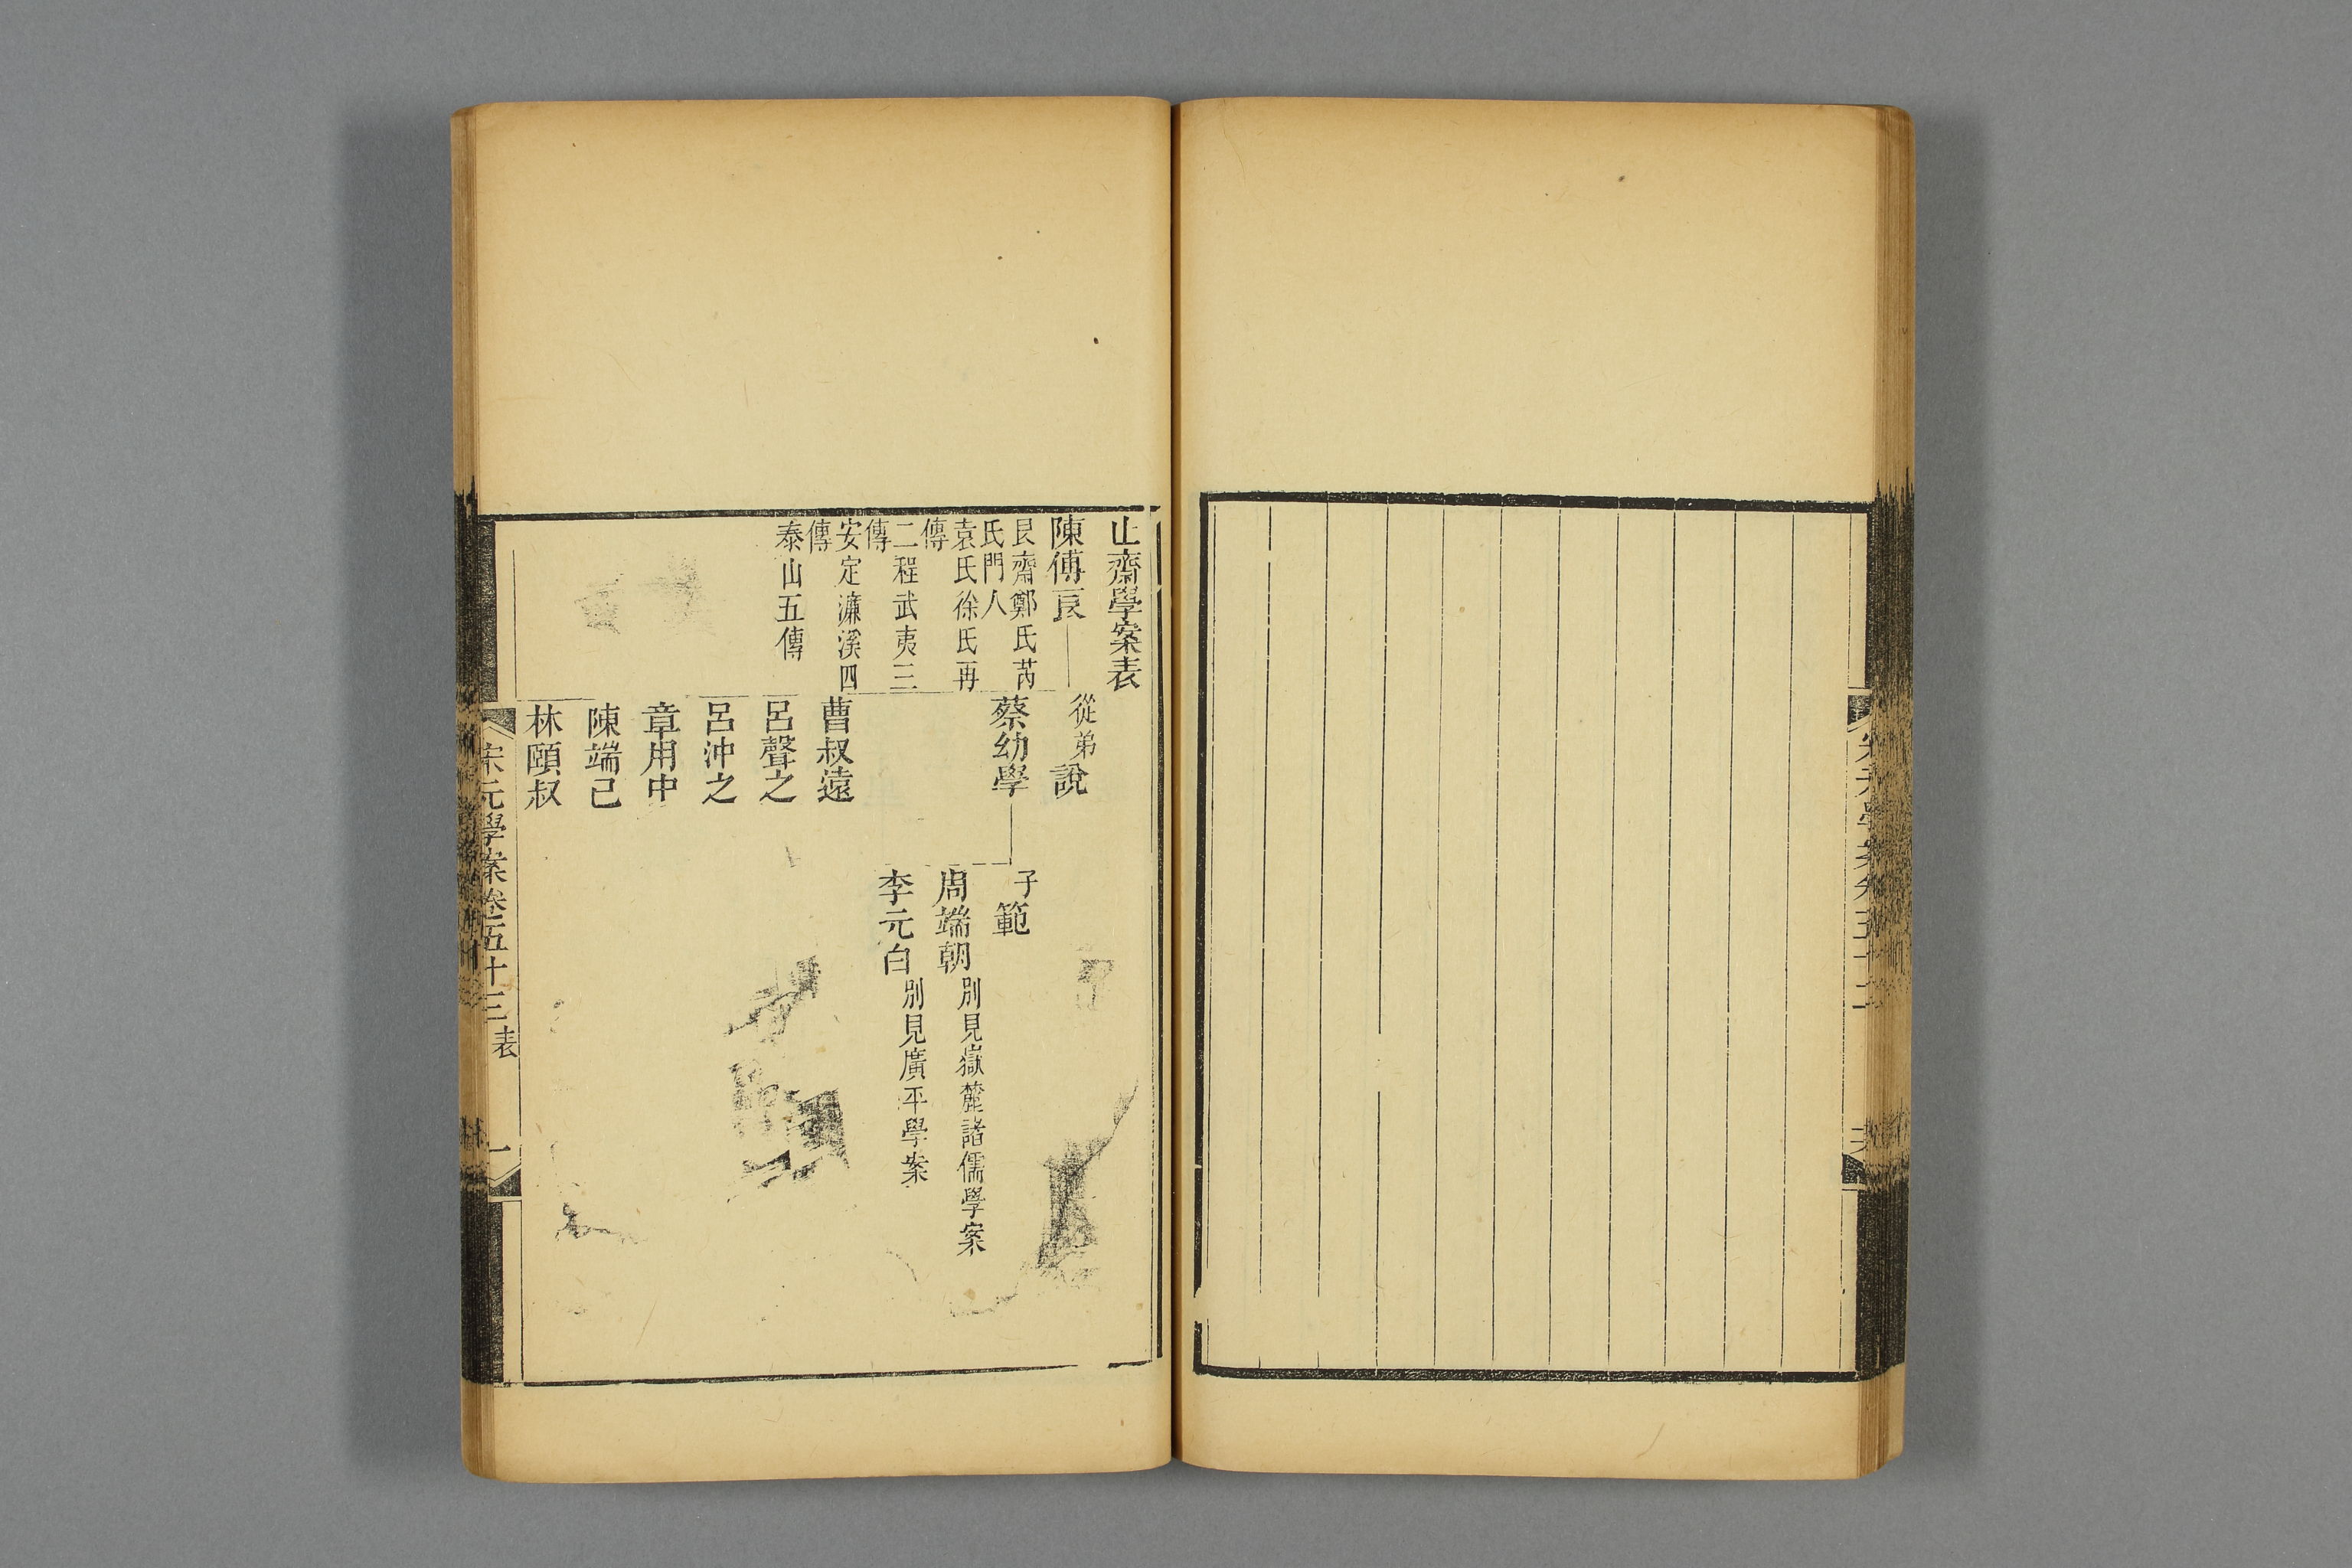 止齋學案表
陳傅良
艮齋鄭氏芮
氏門人
袁氏徐氏再
傳
二程武夷三
傳
安定濂溪四
傳
泰山五傳
從弟說
蔡幼學
子範
周端朝別見嶽麓諸儒學案
李元白別見廣平學案
曹叔遠
呂聲之
呂沖之
章用中
陳端己
林頤叔
宋元學案卷五十三表
一